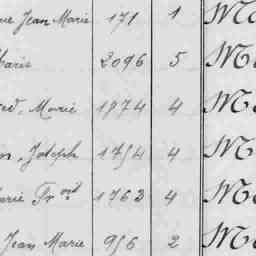 ue Jean Marie 171 1 Ma
Marie 2096 5 M
ed, Marie 1974 4 Ma
n, Joseph 1754 4 M
arie Fr 1763 4 Ma
Jean Marie 956 2 Ma